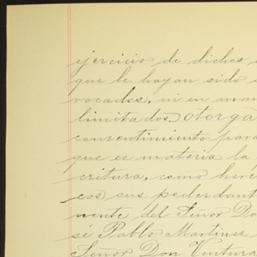 ejercicio de dichos
que le hayan sido
vocados, ni en man
limitados. Otorga
consentimiento para
que es materia la
critura, como here
cos sus poderdant
mente del Señor Do
sé Pablo Martinez
Señor Don Ventura